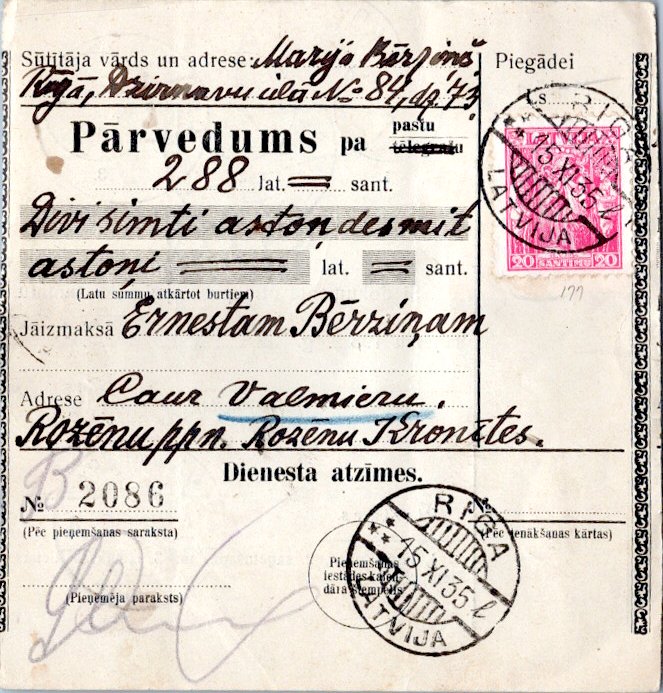 Sūtītāja vārds un adrese: Marija Bērziņš
Rīgā, Dzirnavu ielā № 84, dz. 73
Pārvedums pa pastu telegrafu
288 lat. = sant.
Divi simti astoņdesmit
astoņi — lat. = sant.
(Latu summu atkārtot burtiem)
Jāizmaksā Ernestam Bērziņam
Adrese Caur Valmieru,
Rozēnu ppn. Rozēnu Kronītes.
Piegādei
Ls
RIGA
15 XI 35 l
LATVIJA
LATVIJA
20 SANTIMU 20
177
Dienesta atzīmes.
B
№ 2086
(Pēc pieņemšanas saraksta)
(Pieņēmēja paraksts)
Pieņemšanas
iestādes kalen-
dāra stempelis
RIGA
15 XI 35 l
LATVIJA
№
(Pēc ienākšanas kārtas)